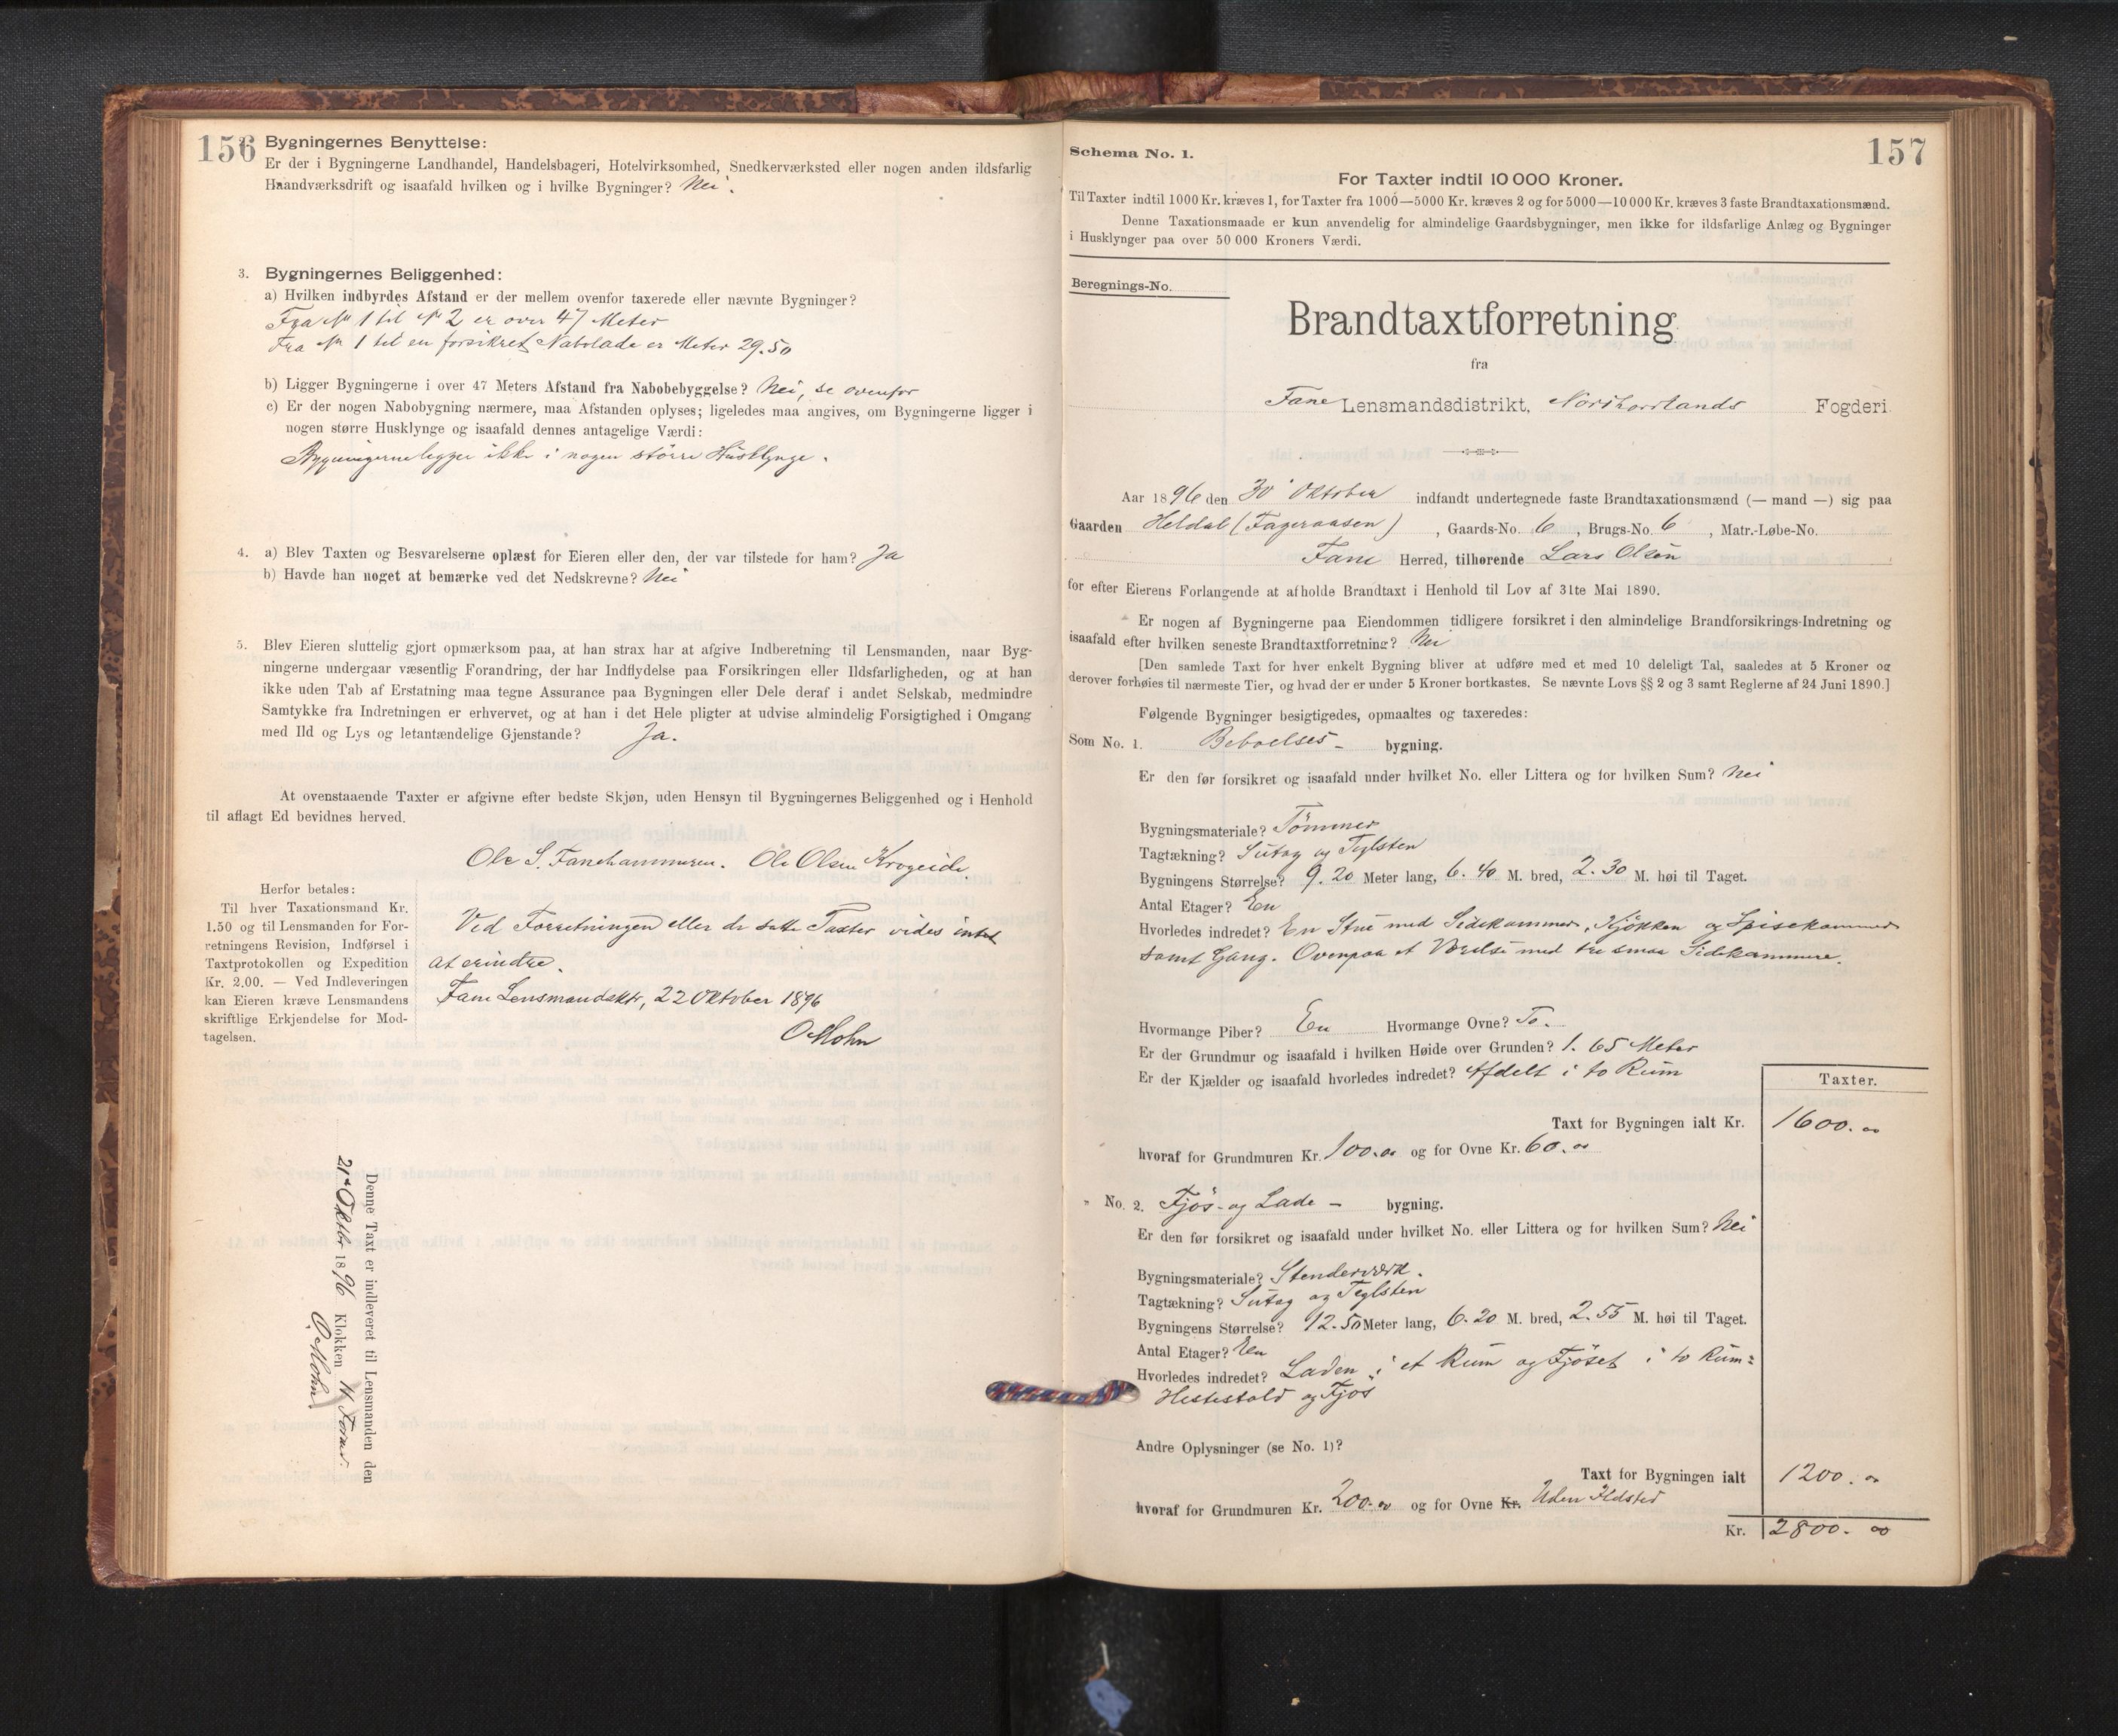 156
Bygningernes Benyttelse:
Er der i Bygningerne Landhandel, Handelsbageri, Hotelvirksomhed, Snedkerværksted eller nogen anden ildsfarlig
Haandværksdrift og isaafald hvilken og i hvilke Bygninger? Nei.
3. Bygningernes Beliggenhed:
a) Hvilken indbyrdes Afstand er der mellem ovenfor taxerede eller nævnte Bygninger?
Fra No 1 til No 2 er over 47 Meter
Fra No 1 til en forsikret Nabolade er Meter 29.50
b) Ligger Bygningerne i over 47 Meters Afstand fra Nabobebyggelse? Nei, se ovenfor
c) Er der nogen Nabobygning nærmere, maa Afstanden oplyses; ligeledes maa angives, om Bygningerne ligger i
nogen større Husklynge og isaafald dennes antagelige Værdi:
Bygningerne ligger ikke i nogen större Husklynge.
4. a) Blev Taxten og Besvarelserne oplæst for Eieren eller den, der var tilstede for ham? Ja
b) Havde han noget at bemærke ved det Nedskrevne? Nei
5. Blev Eieren sluttelig gjort opmærksom paa, at han strax har at afgive Indberetning til Lensmanden, naar Byg-
ningerne undergaar væsentlig Forandring, der har Indflydelse paa Forsikringen eller Ildsfarligheden, og at han
ikke uden Tab af Erstatning maa tegne Assurance paa Bygningen eller Dele deraf i andet Selskab, medmindre
Samtykke fra Indretningen er erhvervet, og at han i det Hele pligter at udvise almindelig Forsigtighed i Omgang
med Ild og Lys og letantændelige Gjenstande? Ja.
At ovenstaaende Taxter er afgivne efter bedste Skjøn, uden Hensyn til Bygningernes Beliggenhed og i Henhold
til aflagt Ed bevidnes herved.
Ole S. Fanehammeren. Ole Olsen Krogeide.
Herfor betales:
Til hver Taxationsmand Kr.
1.50 og til Lensmanden for For-
retningens Revision, Indførsel i
Taxtprotokollen og Expedition
Kr. 2.00. — Ved Indleveringen
kan Eieren kræve Lensmandens
skriftlige Erkjendelse for Mod-
tagelsen.
Ved Forretningen eller de satte Taxter vides intet
at erindre.
Fane Lensmandsktr, 22 Oktober 1896
O Mohn
Denne Taxt er indleveret til Lensmanden den
21de Oktbr 1896 Klokken 11 Form.
O Mohn
157
Schema No. 1.
For Taxter indtil 10 000 Kroner.
Til Taxter indtil 1000 Kr. kræves 1, for Taxter fra 1000—5000 Kr. kræves 2 og for 5000—10 000 Kr. kræves 3 faste Brandtaxationsmænd.
Denne Taxationsmaade er kun anvendelig for almindelige Gaardsbygninger, men ikke for ildsfarlige Anlæg og Bygninger
i Husklynger paa over 50 000 Kroners Værdi.
Beregnings-No.
Brandtaxtforretning
fra
Fane Lensmandsdistrikt, Nordhordlands Fogderi
Aar 1896 den 30 Oktober indfandt undertegnede faste Brandtaxationsmænd (— mand —) sig paa
Gaarden Heldal (Fageraasen), Gaards-No. 6, Brugs-No. 6, Matr.-Løbe-No.
Fane Herred, tilhørende Lars Olsen
for efter Eierens Forlangende at afholde Brandtaxt i Henhold til Lov af 31te Mai 1890.
Er nogen af Bygningerne paa Eiendommen tidligere forsikret i den almindelige Brandforsikrings-Indretning og
isaafald efter hvilken seneste Brandtaxtforretning? Nei
[Den samlede Taxt for hver enkelt Bygning bliver at udføre med et med 10 deleligt Tal, saaledes at 5 Kroner og
derover forhøies til nærmeste Tier, og hvad der er under 5 Kroner bortkastes. Se nævnte Lovs §§ 2 og 3 samt Reglerne af 24 Juni 1890.]
Følgende Bygninger besigtigedes, opmaaltes og taxeredes:
Som No. 1. Beboelses- bygning.
Er den før forsikret og isaafald under hvilket No. eller Littera og for hvilken Sum? Nei
Bygningsmateriale? Tömmer
Tagtækning? Sutag og Teglsten
Bygningens Størrelse? 9.20 Meter lang, 6.40 M. bred, 2.30 M. høi til Taget.
Antal Etager? En
Hvorledes indredet? En Stue med Sidekammer, Kjökken og Spisekammer
samt Gang. Ovenpaa et Værelse med tre smaa Sidekammere.
Hvormange Piber? En Hvormange Ovne? To.
Er der Grundmur og isaafald i hvilken Høide over Grunden? 1.65 Meter
Er der Kjælder og isaafald hvorledes indredet? Afdelt i to Rum
Taxter.
Taxt for Bygningen ialt Kr. 1600.00
hvoraf for Grundmuren Kr. 100.00 og for Ovne Kr. 60.00
" No. 2. Fjös- og Lade- bygning.
Er den før forsikret og isaafald under hvilket No. eller Littera og for hvilken Sum? Nei
Bygningsmateriale? Stenderværk.
Tagtækning? Sutag og Teglsten
Bygningens Størrelse? 12.50 Meter lang, 6.20 M. bred, 2.55 M. høi til Taget.
Antal Etager? En
Hvorledes indredet? Laden i et Rum og Fjöset i to Rum:
Hestestald og Fjös
Andre Oplysninger (se No. 1)?
Taxt for Bygningen ialt 1200.00
hvoraf for Grundmuren Kr. 200.00 og for Ovne Kr. Uden Ildsted
Kr. 2800.00